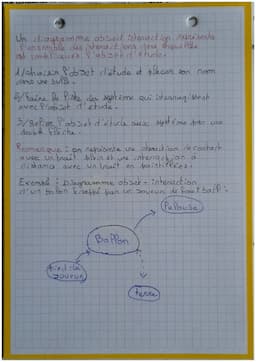 Un diagramme objet interaction représente
l'ensemble des interactions pour lesquelles
est impliqué l'objet d'étude.
1/ choisir l'objet d'étude et placer son nom
dans une bulle.
2/ Faire la liste des système qui interagissent
avec l'objet d'étude.
3/ Relier l'objet d'étude avec système par une
double flèche.
Remarque : on représente une interaction de contact
avec un trait plein et une interaction à
distance avec un trait en pointillées.
Exemple : Diagramme objet - interaction
d'un ballon frappé par un joueur de football :
Pelouse
Ballon
pied du
joueur
terre